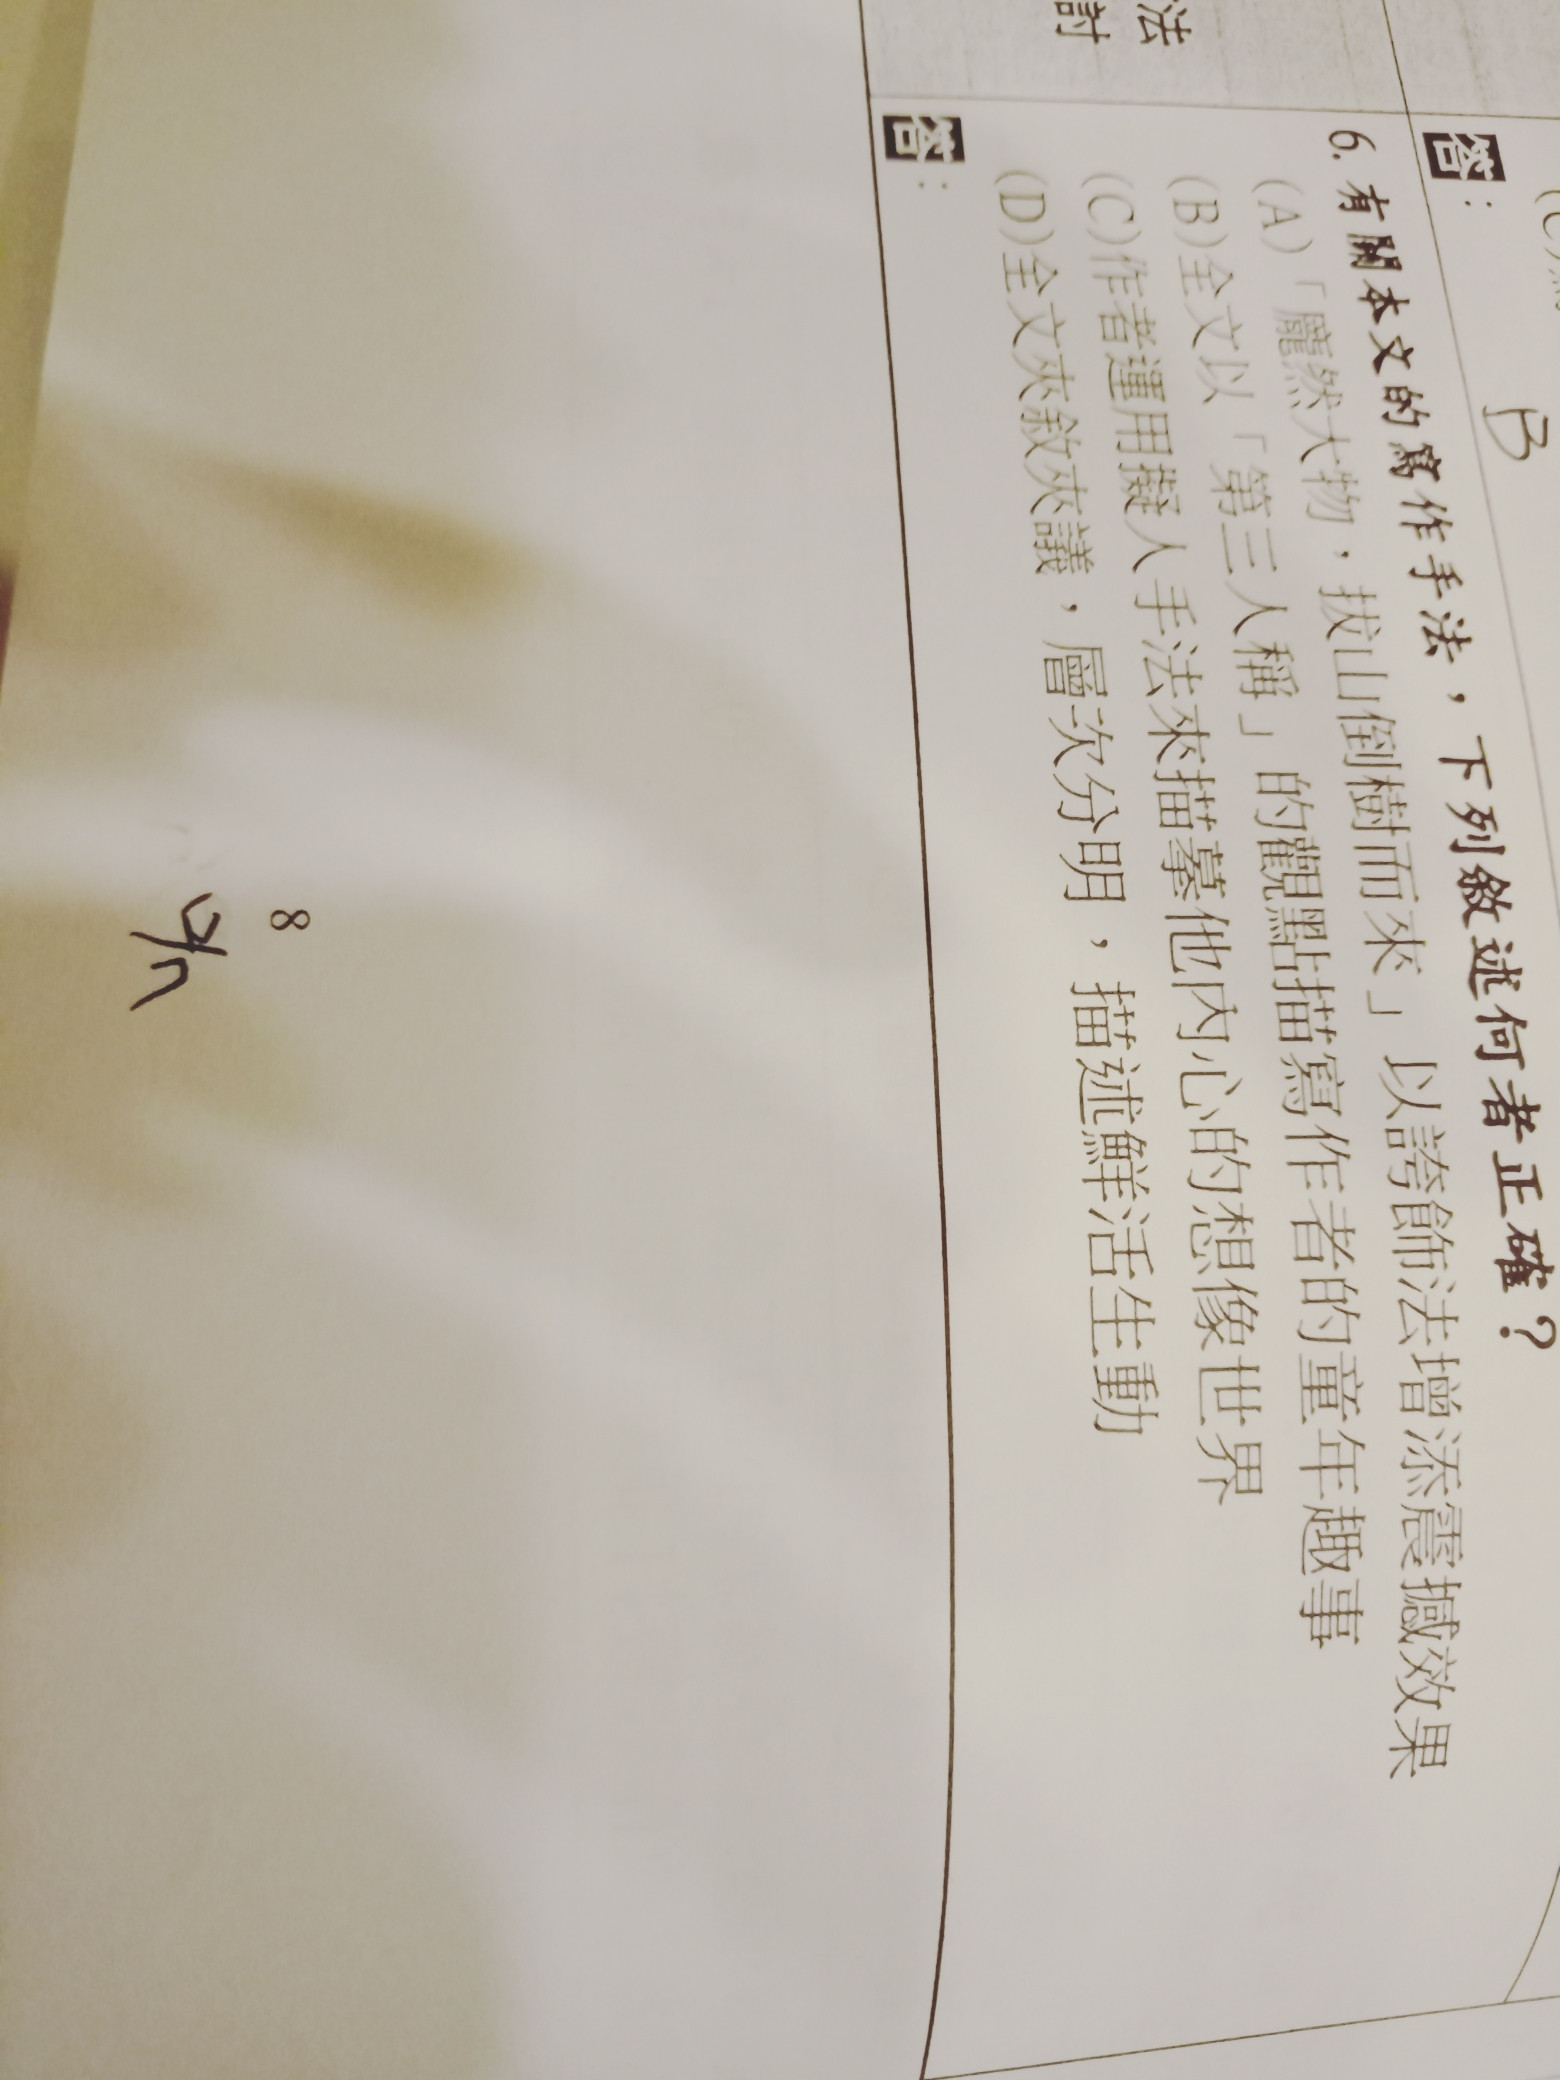 法
討
答：
B
6. 有關本文的寫作手法，下列敘述何者正確？
(A)「龐然大物，拔山倒樹而來」以誇飾法增添震撼效果
(B)全文以「第三人稱」的觀點描寫作者的童年趣事
(C)作者運用擬人手法來描摹他內心的想像世界
(D)全文夾敘夾議，層次分明，描述鮮活生動
答：
8